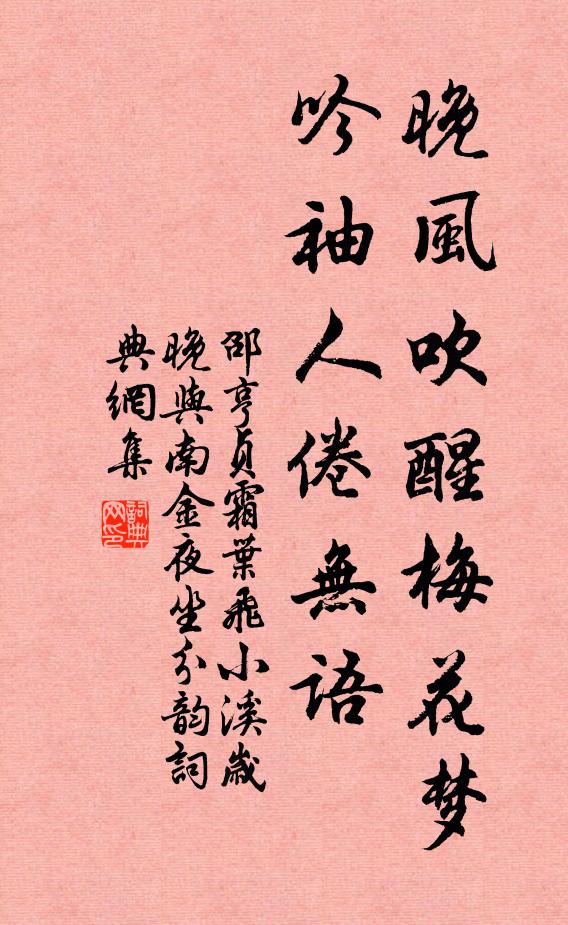 晚風吹醒梅花梦
吟袖人倦無語
邵亨貞霜葉飛小溪歲
晚與南金夜坐分韵詞
典網集
詞典網印